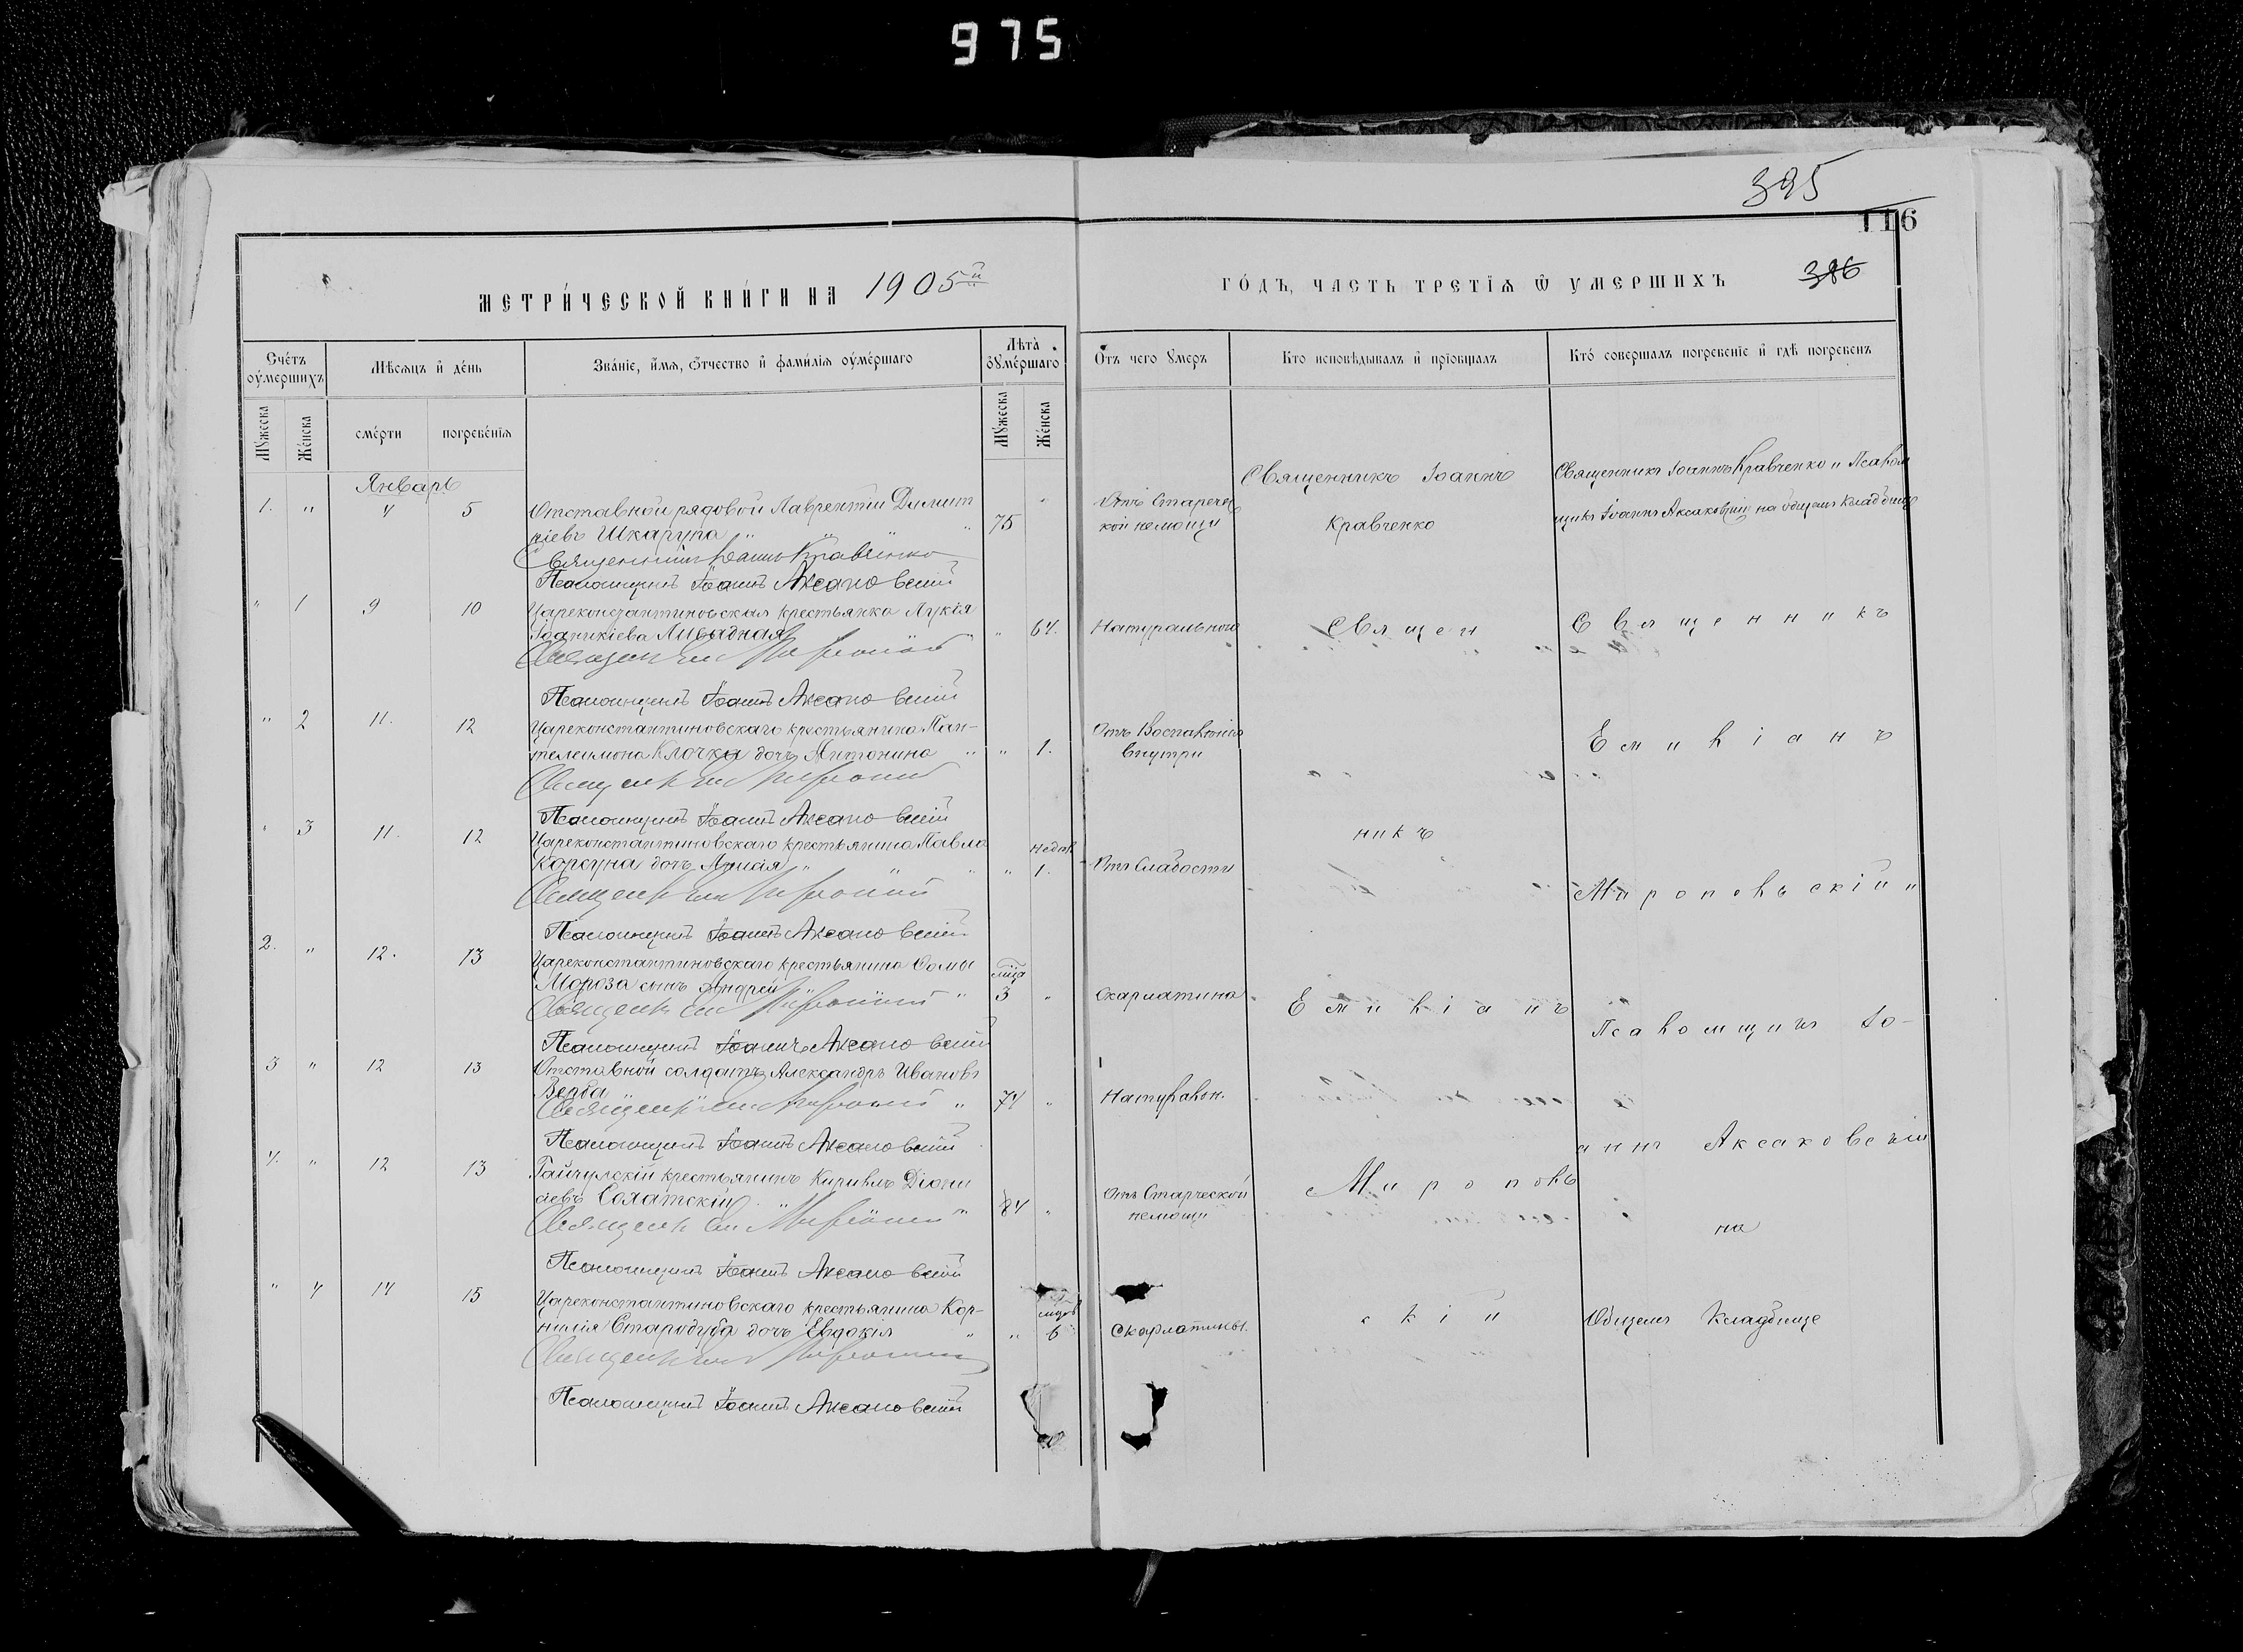 975
395
116
386
МЕТРИЧЕСКОЙ КНИГИ НА 1905й
ГОДЪ, ЧАСТЬ ТРЕТІЯ Ѿ УМЕРШИХЪ
Счетъ оумершихъ
Мѣсяцъ и день
Званіе, имя, отчество и фамилія оумершаго
Лѣта оумершаго
Отъ чего умеръ
Кто исповѣдывалъ и пріобщалъ
Кто совершалъ погребеніе и гдѣ погребенъ
Мужеска
Женска
смерти
погребенія
Мужеска
Женска
Январь
1. " 4 5 Отставной рядовой Лаврентій Димит
ріевъ Шкарупа " " " 75 "
Отъ Старчес
кой немощи
Священникъ Іоаннъ
Кравченко
Священникъ Іоаннъ Кравченко и Псалом
щикъ Іоаннъ Аксаковскій на общемъ кладбищѣ
Священникъ Іоаннъ Кравченко
Псаломщикъ Іоаннъ Аксаковскій
" 1 9 10 Цареконстантиновская крестьянка Лукія
Іоаникіева Лисадная " " 64. Натуральной
Священ
Священникъ
Священникъ Мироновскій
Псаломщикъ Іоаннъ Аксаковскій
" 2 11. 12 Цареконстантиновскаго крестьянина Пан-
телеимона Клочка дочь Антонина " " 1.
Отъ Воспаленія
внутри
Емиліанъ
Священникъ Мироновскій
Псаломщикъ Іоаннъ Аксаковскій
" 3 11. 12 Цареконстантиновскаго крестьянина Павла
Корсуна дочь Анисія " " " недѣл 1. Отъ Слабости
никъ
Мироновскій и
Священникъ Мироновскій
Псаломщикъ Іоаннъ Аксаковскій
2. " 12. 13 Цареконстантиновскаго крестьянина Ѳомы
Мороза сынъ Андрей " " мца 3 " Скарлатина
Емиліанъ
Псаломщикъ Іо-
Священникъ Мироновскій
Псаломщикъ Іоаннъ Аксаковскій
3 " 12 13 Отставной солдатъ Александръ Ивановъ
Верба " " 74 " Натуральн.
аннъ Аксаковскій
Священникъ Мироновскій
Псаломщикъ Іоаннъ Аксаковскій
4. " 12 13 Гайчулскій крестьянинъ Кириллъ Діони
сіевъ Солатскій " " 84 "
Отъ Старческой
немощи
Миронов
на
Священникъ Мироновскій
Псаломщикъ Іоаннъ Аксаковскій
" 4 14 15 Цареконстантиновскаго крестьянина Кор-
нилія Стародуба дочь Евдокія " " мцев 6 Скарлатины.
скій
Общемъ Кладбище
Священникъ Мироновскій
Псаломщикъ Іоаннъ Аксаковскій